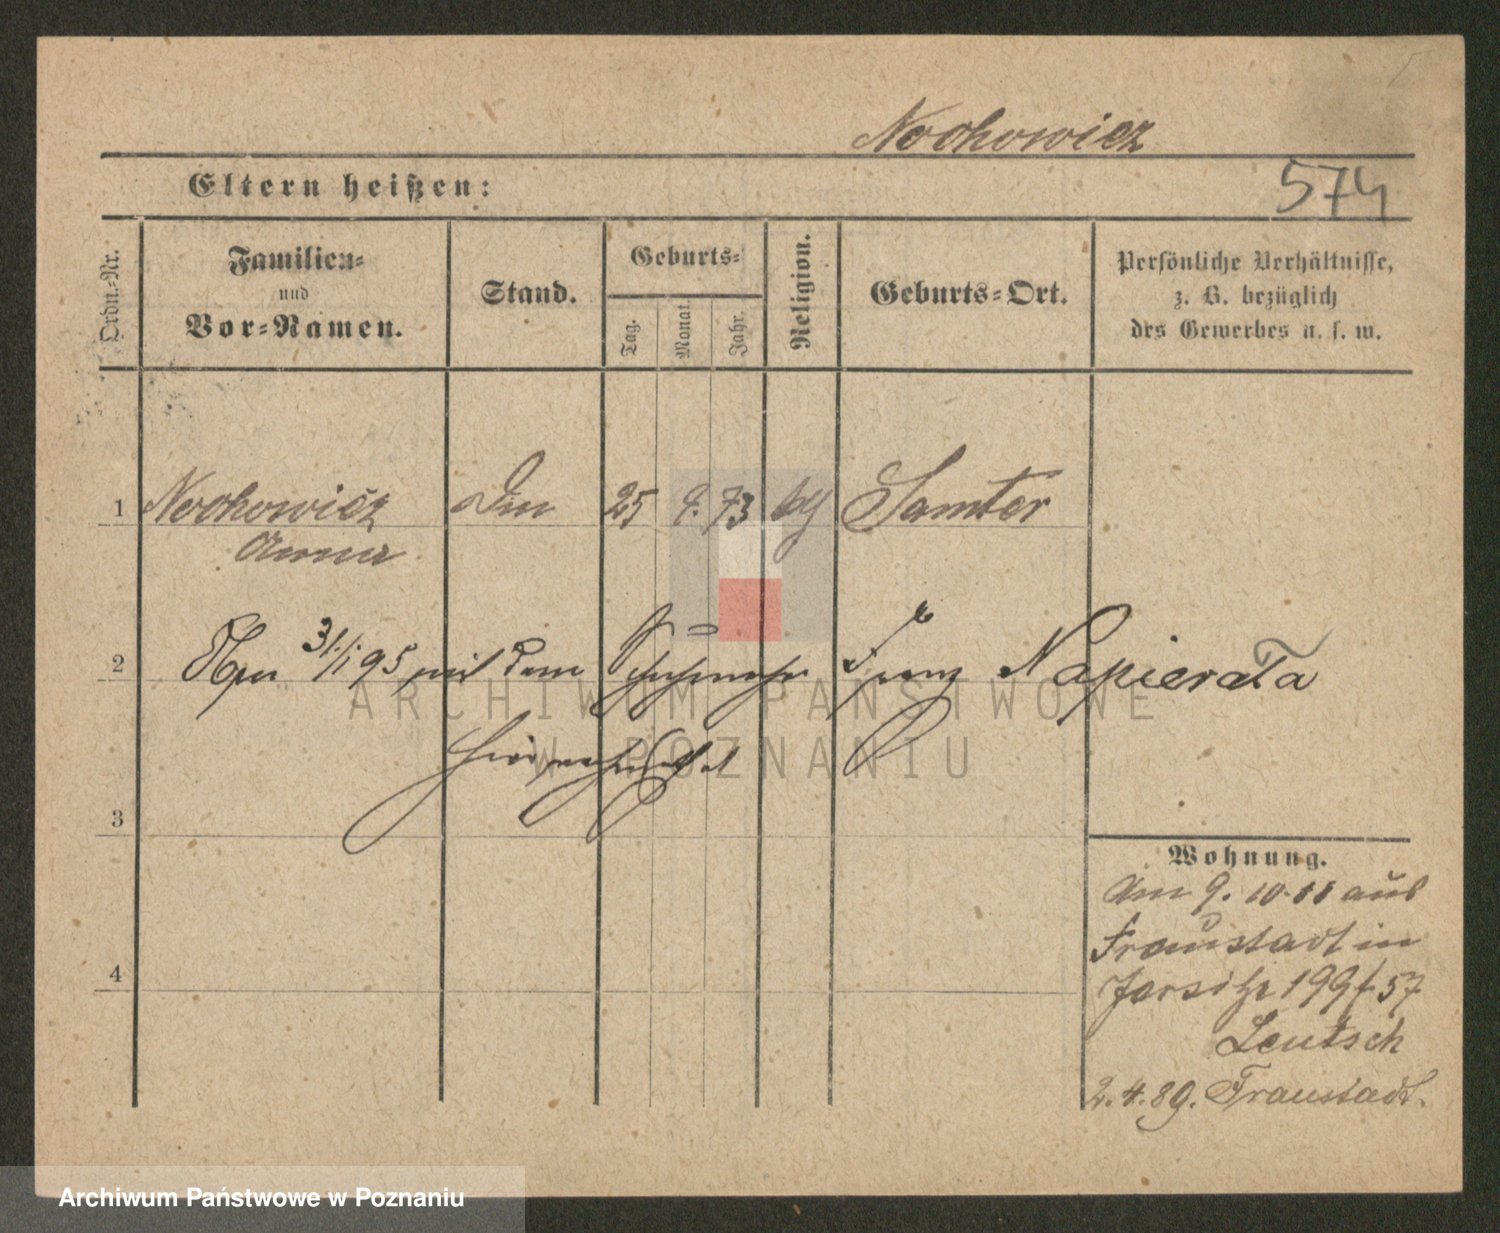 Nochowicz
Eltern heißen:
574
Ordn.-Nr.
Familien-
und
Vor-Namen.
Stand.
Geburts-
Tag.
Monat.
Jahr.
Religion.
Geburts-Ort.
Persönliche Verhältnisse,
z. B. bezüglich
des Gewerbes u. s. w.
1 Nochowicz 25 9. 73 Samter
Anna
2 31/1 95 mit dem Schuhmacher Franz Napierata
3
4
Wohnung.
Am 9. 10. 88 aus
Fraustadt in
Jersitz 199 57
Leutsch
2. 4. 89. Fraustadt.
ARCHIWUM PAŃSTWOWE
W POZNANIU
Archiwum Państwowe w Poznaniu